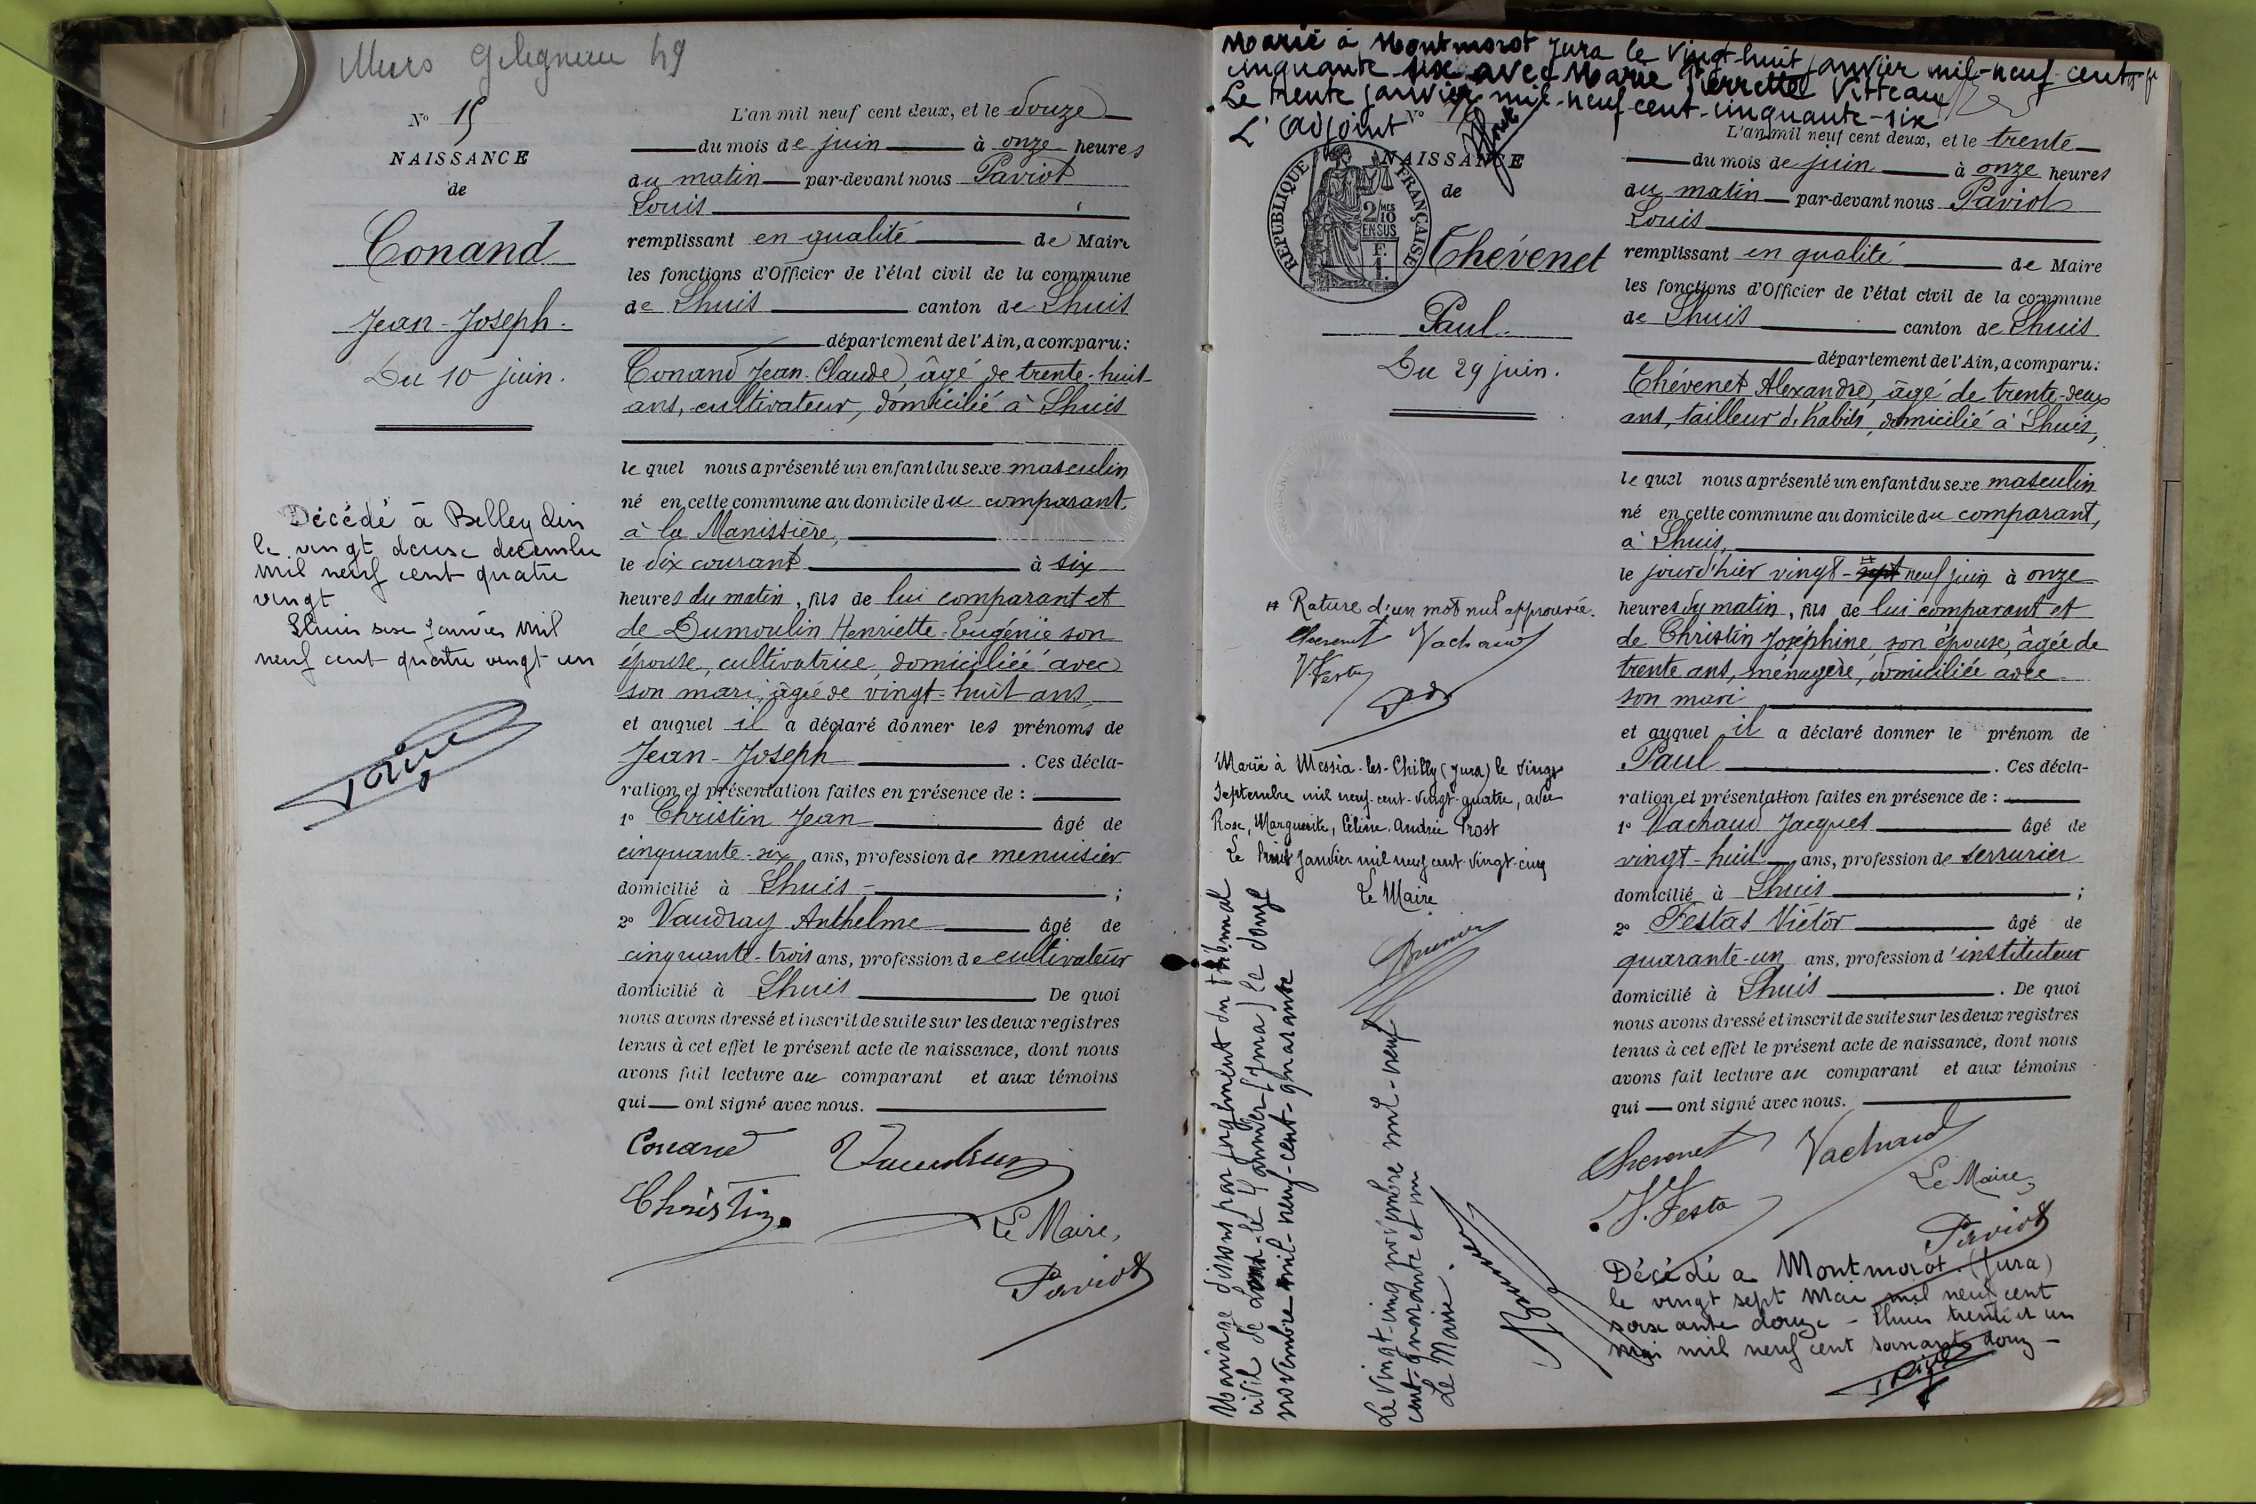 Murs Gélignieu 49
N° 15
NAISSANCE
de
Conand
Jean-Joseph.
Du 10 juin.
Décédé à Belley Ain
le vingt deuse decembre
mil neuf cent quatre
vingt
Lhuis sese janvier mil
neuf cent quatre vingt un
L'an mil neuf cent deux, et le douze
du mois de juin à onze heures
du matin par-devant nous Paviot
Louis
remplissant en qualité de Maire
les fonctions d'Officier de l'état civil de la commune
de Lhuis canton de Lhuis
département de l'Ain, a comparu:
Conand Jean-Claude, âgé de trente-huit
ans, cultivateur, domicilié à Lhuis
le quel nous a présenté un enfant du sexe masculin
né en cette commune au domicile du comparant,
à la Manissière,
le dix courant à six
heures du matin, fils de lui comparant et
de Dumoulin Henriette-Eugénie son
épouse, cultivatrice, domiciliée avec
son mari, âgée de vingt-huit ans,
et auquel il a déclaré donner les prénoms de
Jean-Joseph. Ces décla-
ration et présentation faites en présence de :
1° Christin Jean âgé de
cinquante-six ans, profession de menuisier
domicilié à Lhuis ;
2° Vaudray Anthelme âgé de
cinquante-trois ans, profession de cultivateur
domicilié à Lhuis De quoi
nous avons dressé et inscrit de suite sur les deux registres
tenus à cet effet le présent acte de naissance, dont nous
avons fait lecture au comparant et aux témoins
qui ont signé avec nous.
Conand
Christin
Le Maire,
Paviot
Marié à Montmorot Jura le vingt-huit janvier mil-neuf-cent
cinquante-six avec Marie Pierrette Vitteau
Le trente janvier mil-neuf-cent-cinquante-six
L'adjoint
N°
NAISSANCE
de
RÉPUBLIQUE FRANÇAISE
2 MES
10
EN SUS
Thévenet
Paul.
Du 29 juin.
# Rature d'un mot nul approuvée.
Thevenet Vachaud
V. Festas
Marié à Messia-les-Chilly (Jura) le vingt
Septembre mil neuf-cent-vingt-quatre, avec
Rose, Marguerite, Céline, Andrée Prost
Le huit Janvier mil neuf cent-vingt-cinq
Le Maire
Mariage dissous par jugement du tribunal
civil de Lons-le-Saunier (Jura) le douze
novembre mil-neuf-cent-quarante
Le vingt-cinq novembre mil-neuf
cent-quarante et un
Le Maire.
L'an mil neuf cent deux, et le trente
du mois de juin à onze heures
du matin par-devant nous Paviot
Louis
remplissant en qualité de Maire
les fonctions d'Officier de l'état civil de la commune
de Lhuis canton de Lhuis
département de l'Ain, a comparu:
Thévenet Alexandre, âgé de trente-deux
ans, tailleur d'habits, domicilié à Lhuis,
le quel nous a présenté un enfant du sexe masculin
né en cette commune au domicile du comparant,
à Lhuis,
le jourd'hier vingt-sept # neuf juin à onze
heures du matin, fils de lui comparant et
de Christin Joséphine son épouse, âgée de
trente ans, ménagère, domiciliée avec
son mari
et auquel il a déclaré donner le prénom de
Paul. Ces décla-
ration et présentation faites en présence de :
1° Vachaud Jacques âgé de
vingt-huit ans, profession de serrurier
domicilié à Lhuis ;
2° Festas Victor âgé de
quarante-un ans, profession d'instituteur
domicilié à Lhuis. De quoi
nous avons dressé et inscrit de suite sur les deux registres
tenus à cet effet le présent acte de naissance, dont nous
avons fait lecture au comparant et aux témoins
qui ont signé avec nous.
Thevenet Vachaud
V. Festas Le Maire,
Paviot
Décédé a Montmorot (Jura)
le vingt sept Mai mil neuf cent
soixante douze - Lhuis trente et un
Mai mil neuf cent soixante douze